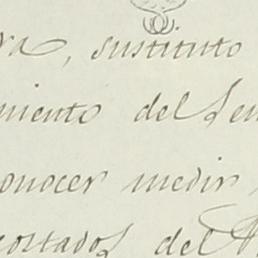 sustituto
miento del
onocer medir
costados del